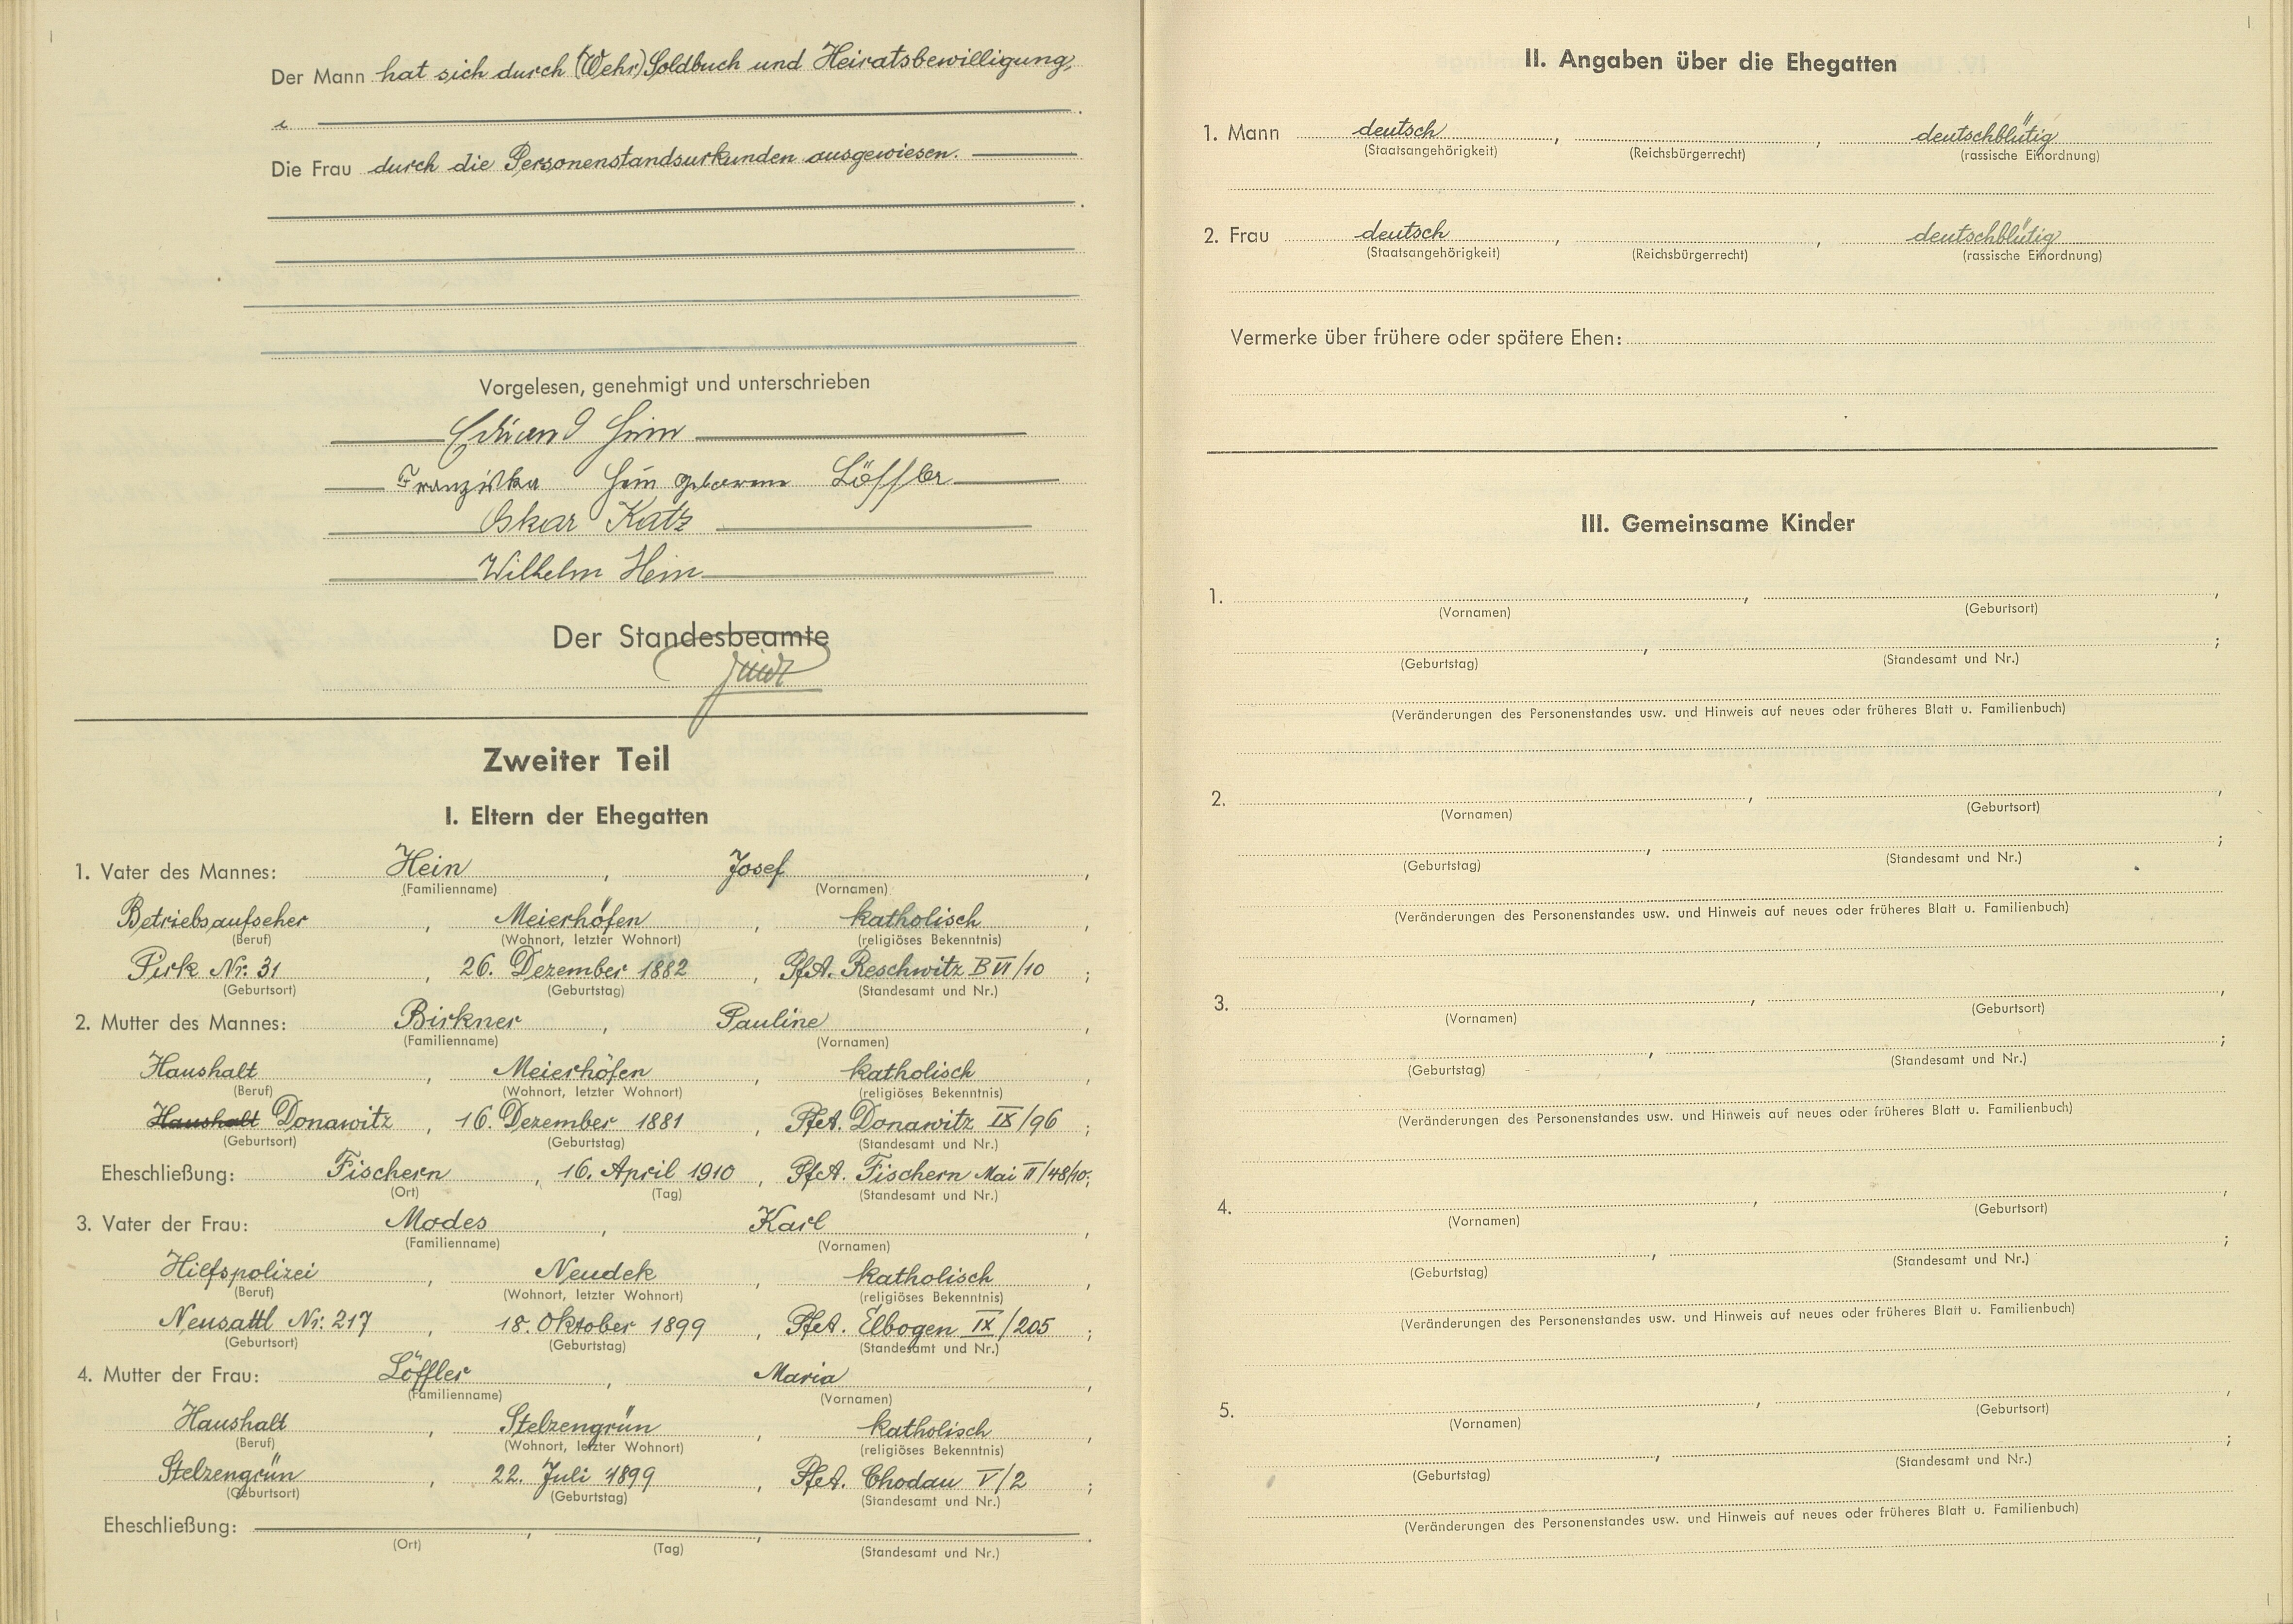 Der Mann hat sich durch (Wehr) Soldbuch und Heiratsbewilligung,
Die Frau durch die Personenstandsurkunden ausgewiesen.
Vorgelesen, genehmigt und unterschrieben
Eduard Hein
Franziska Hein geborene Löffler
Oskar Katz
Wilhelm Hein
Der Standesbeamte
Zweiter Teil
I. Eltern der Ehegatten
1. Vater des Mannes: Hein, Josef,
(Familienname) (Vornamen)
Betriebsaufseher, Meierhöfen, katholisch,
(Beruf) (Wohnort, letzter Wohnort) (religiöses Bekenntnis)
Pirk Nr. 31, 26. Dezember 1882, PfA. Reschwitz B VI/10;
(Geburtsort) (Geburtstag) (Standesamt und Nr.)
2. Mutter des Mannes: Birkner, Pauline,
(Familienname) (Vornamen)
Haushalt, Meierhöfen, katholisch,
(Beruf) (Wohnort, letzter Wohnort) (religiöses Bekenntnis)
Haushalt Donawitz, 16. Dezember 1881, PfA. Donawitz IX/96;
(Geburtsort) (Geburtstag) (Standesamt und Nr.)
Eheschließung: Fischern, 16. April 1910, PfA. Fischern Mai II/48/10;
(Ort) (Tag) (Standesamt und Nr.)
3. Vater der Frau: Modes, Karl,
(Familienname) (Vornamen)
Hilfspolizei, Neudek, katholisch,
(Beruf) (Wohnort, letzter Wohnort) (religiöses Bekenntnis)
Neusattl Nr. 217, 18. Oktober 1899, PfA. Elbogen IX/205;
(Geburtsort) (Geburtstag) (Standesamt und Nr.)
4. Mutter der Frau: Löffler, Maria,
(Familienname) (Vornamen)
Haushalt, Stelzengrün, katholisch,
(Beruf) (Wohnort, letzter Wohnort) (religiöses Bekenntnis)
Stelzengrün, 22. Juli 1899, PfA. Chodau V/2;
(Geburtsort) (Geburtstag) (Standesamt und Nr.)
Eheschließung: , , .
(Ort) (Tag) (Standesamt und Nr.)
II. Angaben über die Ehegatten
1. Mann deutsch, , deutschblütig
(Staatsangehörigkeit) (Reichsbürgerrecht) (rassische Einordnung)
2. Frau deutsch, , deutschblütig
(Staatsangehörigkeit) (Reichsbürgerrecht) (rassische Einordnung)
Vermerke über frühere oder spätere Ehen:
III. Gemeinsame Kinder
1. , ,
(Vornamen) (Geburtsort)
, ;
(Geburtstag) (Standesamt und Nr.)
(Veränderungen des Personenstandes usw. und Hinweis auf neues oder früheres Blatt u. Familienbuch)
2. , ,
(Vornamen) (Geburtsort)
, ;
(Geburtstag) (Standesamt und Nr.)
(Veränderungen des Personenstandes usw. und Hinweis auf neues oder früheres Blatt u. Familienbuch)
3. , ,
(Vornamen) (Geburtsort)
, ;
(Geburtstag) (Standesamt und Nr.)
(Veränderungen des Personenstandes usw. und Hinweis auf neues oder früheres Blatt u. Familienbuch)
4. , ,
(Vornamen) (Geburtsort)
, ;
(Geburtstag) (Standesamt und Nr.)
(Veränderungen des Personenstandes usw. und Hinweis auf neues oder früheres Blatt u. Familienbuch)
5. , ,
(Vornamen) (Geburtsort)
, ;
(Geburtstag) (Standesamt und Nr.)
(Veränderungen des Personenstandes usw. und Hinweis auf neues oder früheres Blatt u. Familienbuch)